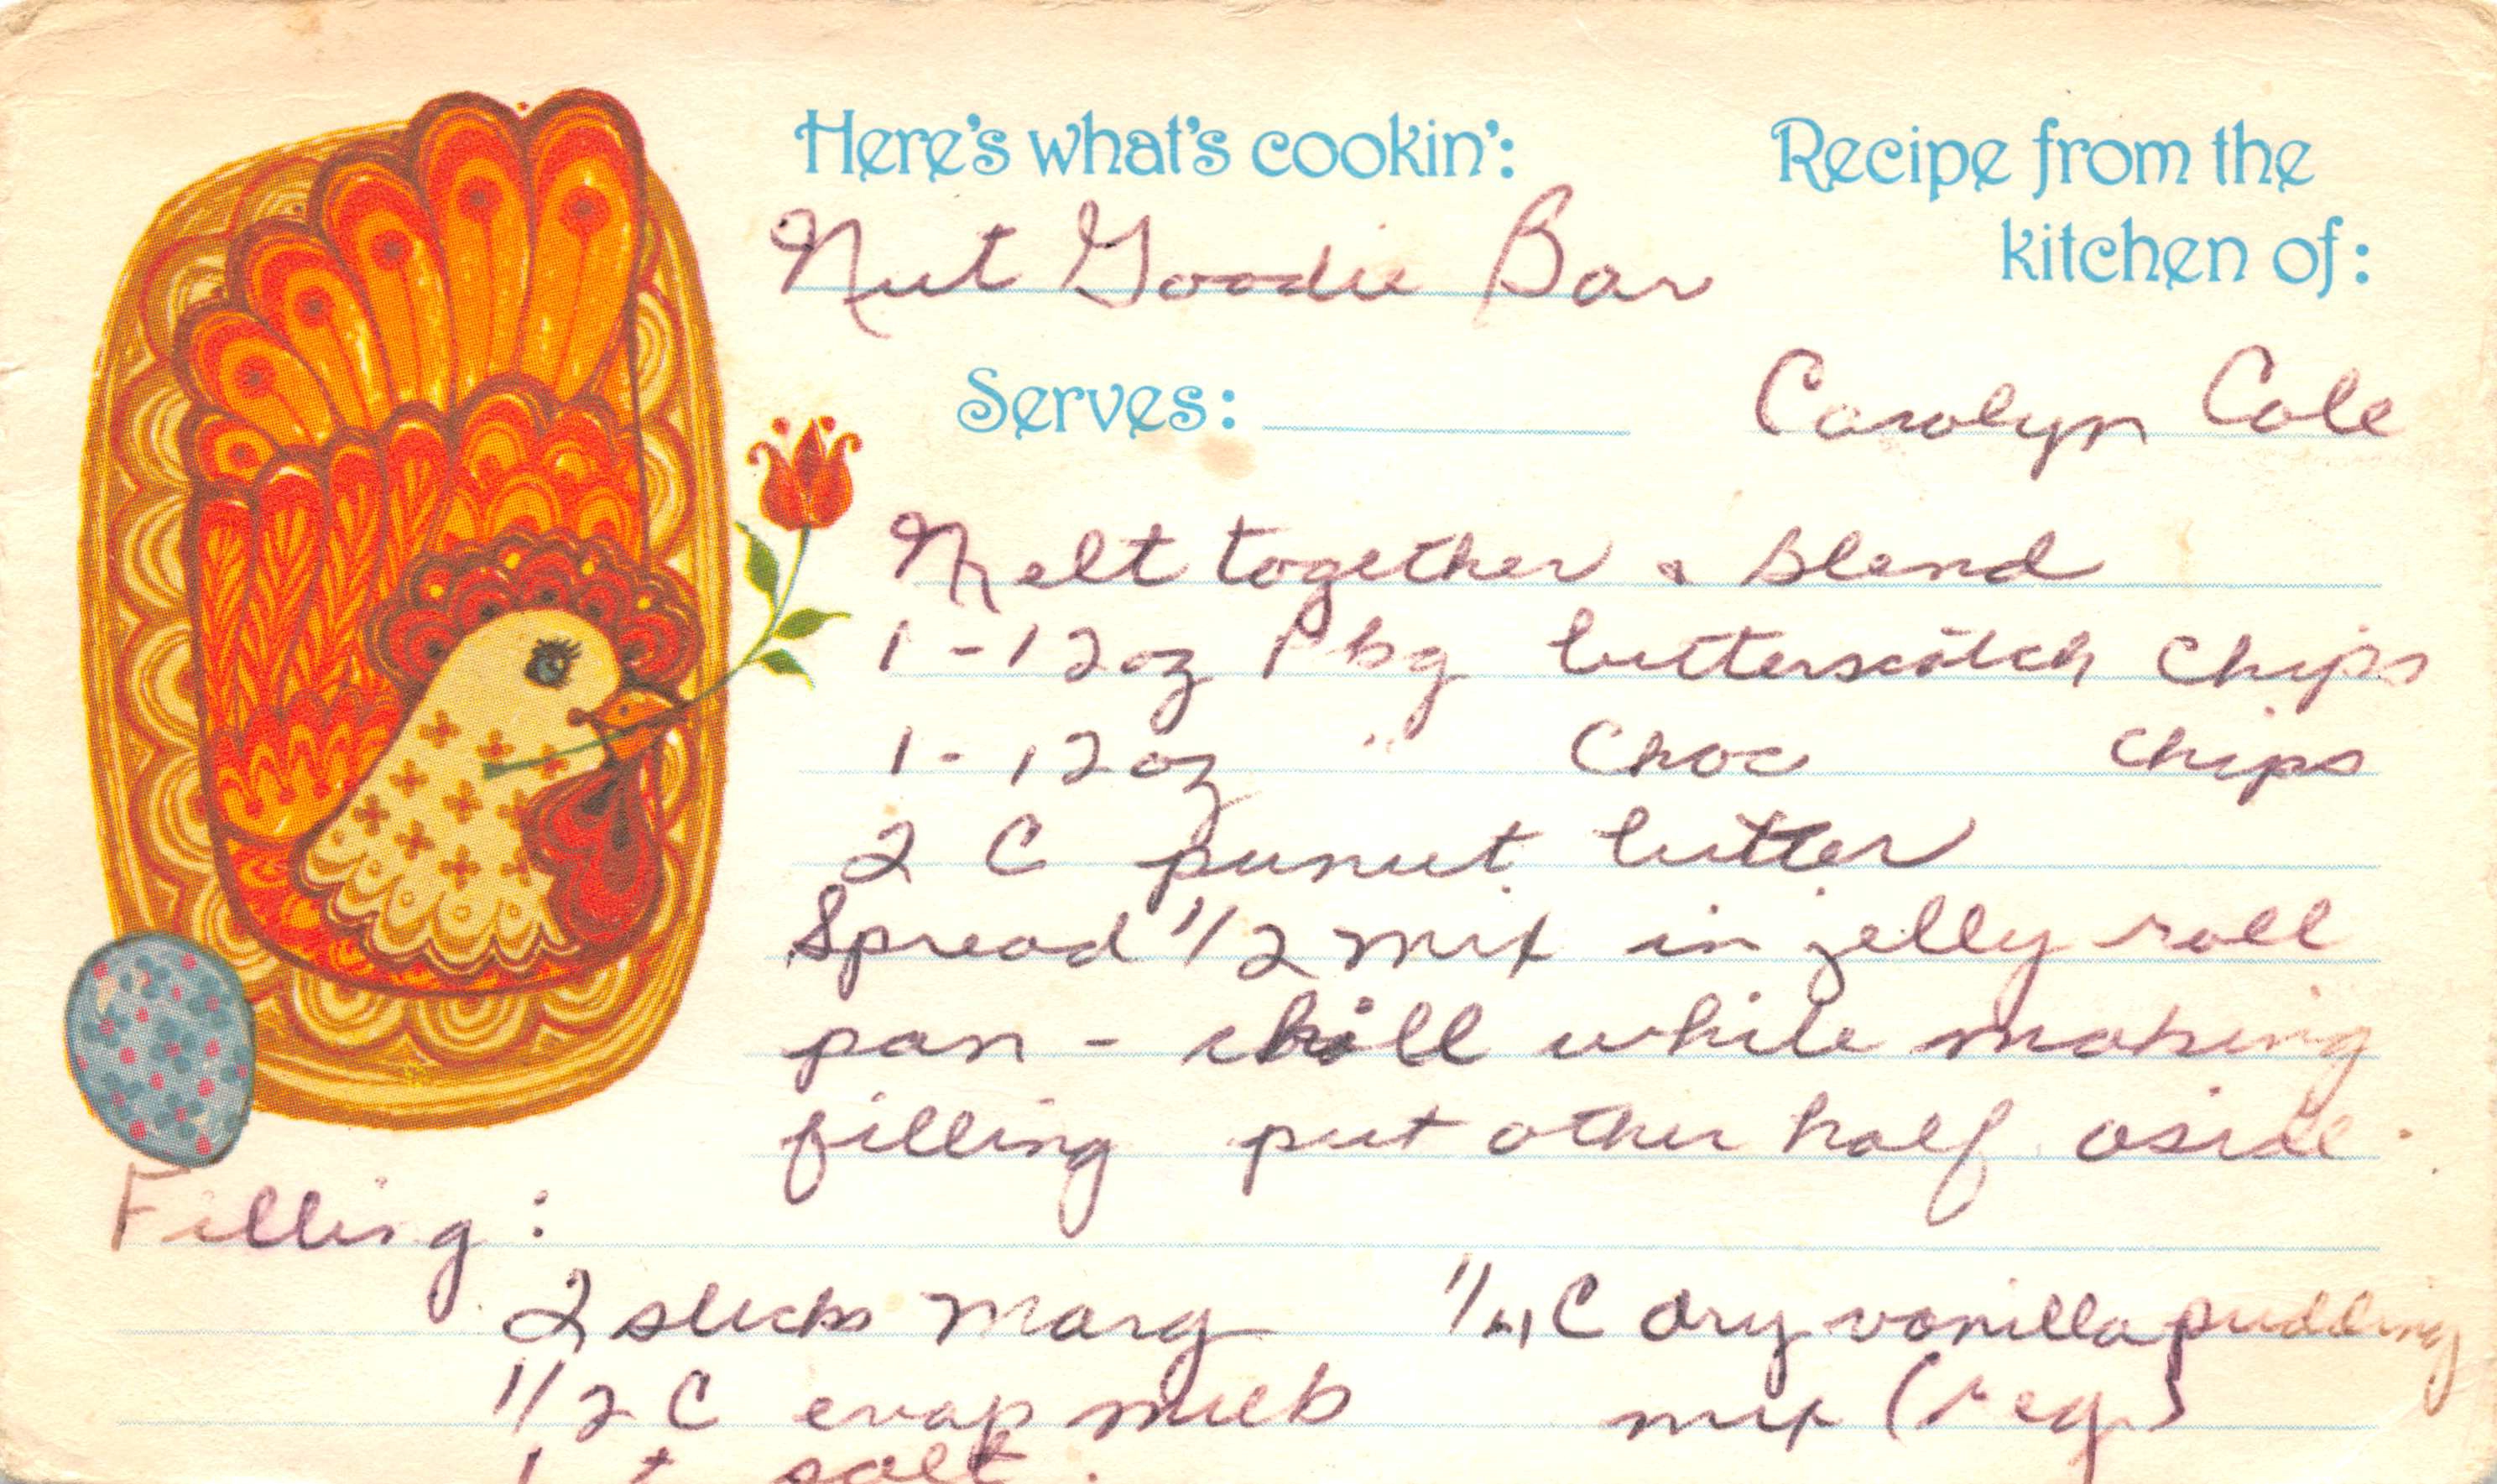 Here's what's cookin':
Recipe from the
kitchen of:
Nut Goodie Bar
Serves:
Carolyn Cole
Melt together & blend
1-12oz Pkg butterscotch chips
1-12oz " Choc chips
2 C peanut butter
Spread 1/2 mix in jelly roll
pan - chill while making
filling put other half aside.
Filling:
2 sticks marg
1/4 C dry vanilla pudding
1/2 C evap milk
mix (reg)
1 t salt.